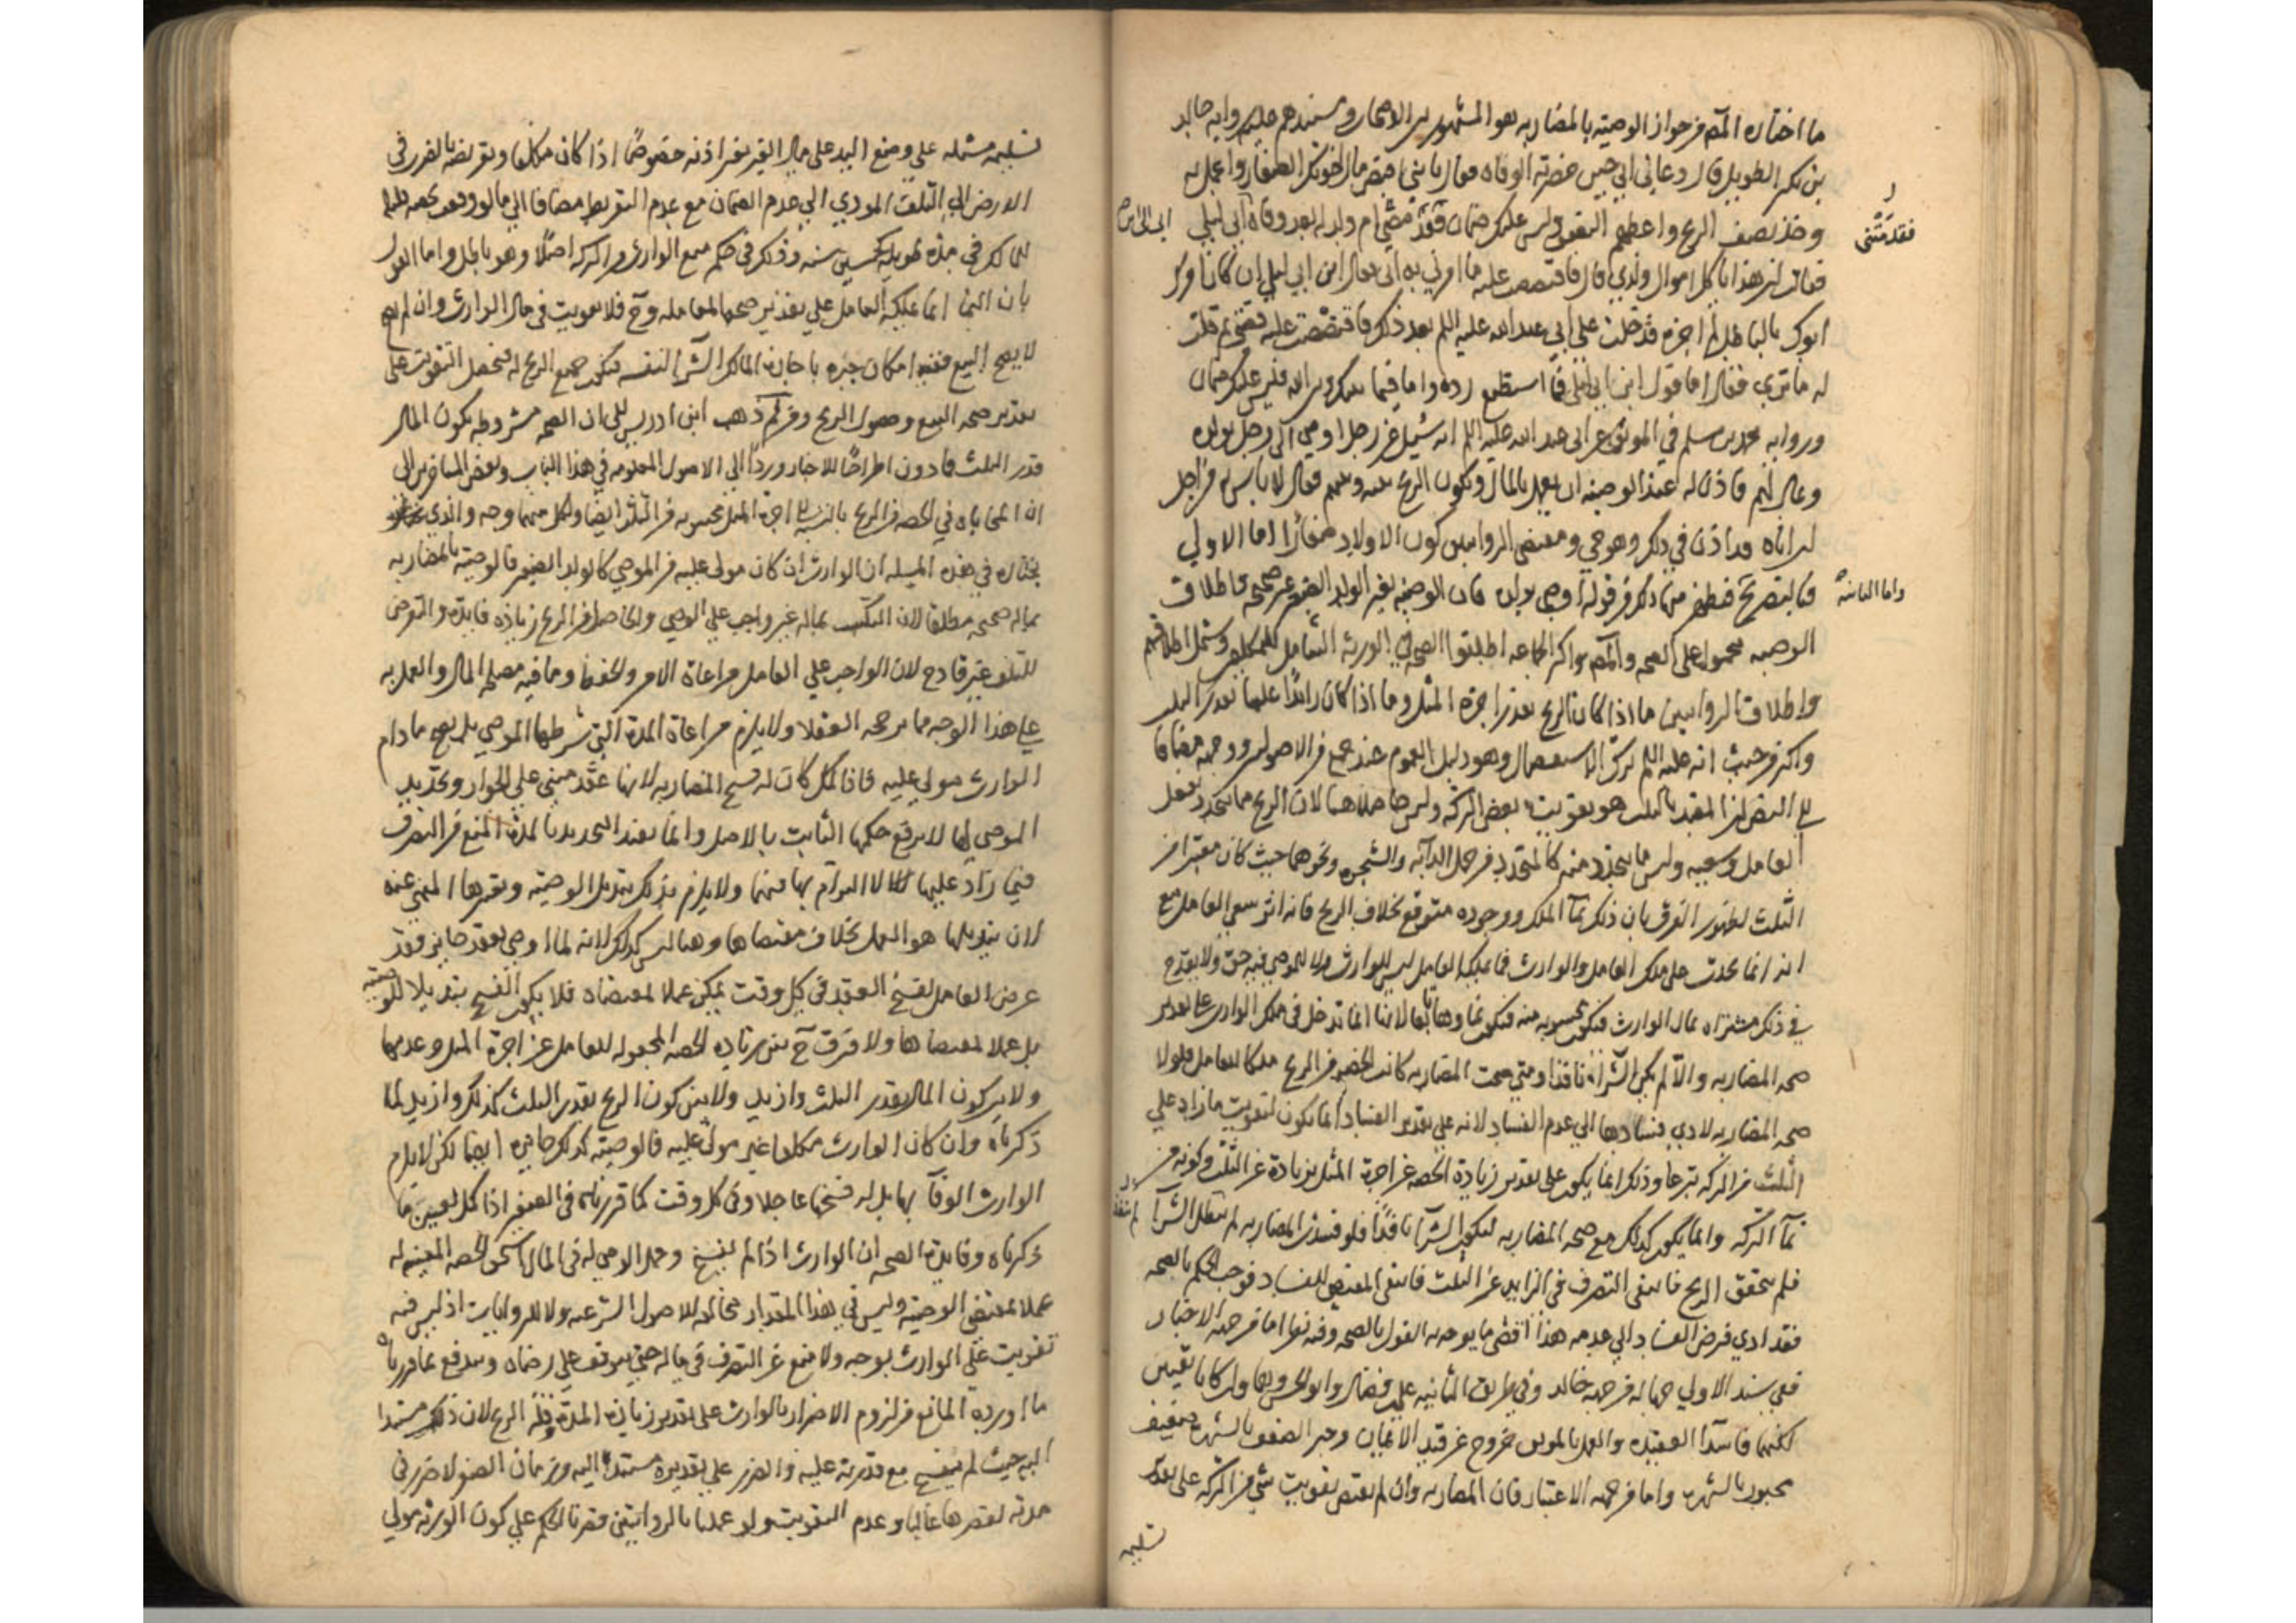 ما اختاره المصم من جواز الوصية بالمضاربه هو المشهور بين الاصحاب ومستندهم عليه روايه خالد
بن بكر الطويل قال دعاني ابي حين حضرته الوفاة فقال يا بني اقبض مال اخوتك الصغار واعمل به
وخذ نصف الربح واعطهم النصف وليس عليك ضمان فقدمتني ام ولد له بعد وفاة ابي الى ابن ابي ليلى
فقالت ان هذا ياكل اموال ولدي قال فاقتصصت عليه ما امرني به ابي فقال ابن ابي ليلى ان كان امرك
ابوك بالباطل لم اجزه فدخلت على ابي عبد الله عليه السلم بعد ذلك فاقتصصت عليه قصتي ثم قلت
له ما ترى فقال اما قول ابن ابي ليلى فما استطيع رده واما فيما بينك وبين الله فليس عليك ضمان
وروايه محمد بن مسلم في الموثق عن ابي عبد الله عليه السلم انه سئل عن رجل اوصى الى رجل بولده
وبمال لهم فاذن له عند الوصيه ان يعمل بالمال ويكون الربح بينه وبينهم فقال لا باس به من اجل
ان اباه قد اذن في ذلك وهو حي ومقتضى الروايتين كون الاولاد صغارا اما الاولى
فبالتصريح واما الثانيه فيظهر منها ذلك من قوله اوصى بولده فان الوصيه بغير الولد الصغير غير صحيحه فاطلاق
الوصيه محمول على الصحه والمصم واكثر الجماعه اطلقوا الصحه في الورثة الشامل للمكلفين وشمل اطلاقهم
واطلاق الروايتين ما اذا كان الربح بقدر اجره المثل وما اذا كان زايدا عليها بقدر الثلث
واكثر من حيث انه عليه السلم ترك الاستفصال وهو دليل العموم عند جمع من الاصوليين ووجهه مضافا
الى النص ان المقيد بالثلث هو تفويت بعض التركه وليس حاصلا هنا لان الربح متجدد بفعل
العامل وسعيه وليس ما يتجدد منه كالمتجدد من حمل الدابه والشجره ونحوهما حيث كان معتبرا من
الثلث لظهور الفرق بان ذلك نماء الملك ووجوده متوقع بخلاف الربح فانه اثر سعي العامل مع
انه انما يحدث على ملك العامل والوارث فما يملكه العامل ليس للوارث ولا للموصي فيه حق ولا يقدح
في ذلك مشتراه بمال الوارث فيكون محسوبه منه فيكون نماوها تابعا لها لانها انما تدخل في ملك الوارث على تقدير
صحه المضاربه والا لم يكن الشراء نافذا ومتى صحت المضاربه كانت الحصه من الربح ملكا للعامل فلولا
صحه المضاربه لادى فسادها الى عدم الفساد لانه على تقدير الفساد انما يكون لتفويت ما زاد على
الثلث من التركه تبرعا وذلك انما يكون على تقدير زيادة الحصه عن اجرة المثل بزيادة عن الثلث وكونه من
نماء التركه وانما يكون كذلك مع صحه المضاربه ليكون الشراء نافذا فلو فسدت المضاربه لم ينفذ الشراء
فلم يتحقق الربح فانتفى التصرف في الزايد عن الثلث فانتفى المقتضي للفساد فوجب الحكم بالصحه
فقد ادى فرض الفساد الى عدمه هذا اقصى ما يوجه به القول بالصحه وفيه نظر اما من جهه الاخبار
ففي سند الاولى جهاله من جهه خالد وفي طريق الثانيه علي بن فضال وابوه الحسن وهما وان كانا ثقتين
لكنهما فاسدا العقيده والعمل بالموثق خروج عن قيد الايمان وجبر الضعف بالشهره ضعيف
مجبور بالشهره واما من جهه الاعتبار فان المضاربه وان لم يقتض تفويت شي من التركه على تقدير
تسليمه
تسليمه مشتمله على وضع اليد على مال الغير بغير اذنه خصوصا اذا كان مكلفا وتعريضه بالضرر في
الارض الى التلف المودي الى عدم الضمان مع عدم التفريط مضافا الى ما لو وقعت بحصه قليله
للمالك في مده طويله كخمسين سنه وذلك في حكم منع الوارث من التركه اصلا وهو باطل واما القول
بان النما انما يملكه العامل على تقدير صحه المعامله وح فلا تفويت في مال الوارث وان لم يصح
لا يصح البيع ففيه امكان جبره باجازه المالك الشراء لنفسه فيكون جميع الربح له فيحصل التفويت على
تقدير صحه البيع وحصول الربح ومن ثم ذهب ابن ادريس الى ان الصحه مشروطه بكون المال
قدر الثلث فما دون اطراحا للاخبار وردا الى الاصول المعلومه في هذا الباب وبعض المتاخرين الى
ان المحاباه في الحصه من الربح بالنسبه الى اجرة المثل محسوبه من الثلث ايضا ولكل منهما وجه والذي
يختاره في هذه المسيله ان الوارث ان كان مولى عليه من الموصي كالولد الصغير فالوصيه بالمضاربه
بماله صحيحه مطلقا لان التكسب بماله غير واجب على الوصي والحاصل من الربح زياده فايده والتعرض
للتلف غير قادح لان الواجب على العامل مراعاة الامر والحفظ وما فيه مصلحه المال والعمل به
على هذا الوجه مما يرجحه العقلا ولا يلزم مراعاة المدة التي شرطها الموصي بل يصح ما دام
الوارث مولى عليه فاذا كمل كان له فسخ المضاربه لانها عقد مبني على الجواز وتحديد
الموصي لها لا يرفع حكمها الثابت بالاصل وانما يفيد التحديد بالمدة المنع من التصرف
فيما زاد عليها لا الالتزام بها فيها ولا يلزم بذلك تبديل الوصيه وتغييرها المنهي عنه
لان تبديلها هو العمل بخلاف مقتضاها وهنا ليس كذلك لانه لما اوصى بعقد جايز فقد
عرض العامل لفسخ العقد في كل وقت يمكن عملا لمقتضاه فلا يكون الفسخ تبديلا للوصيه
بل عملا لمقتضاها ولا فرق ح بين زياده الحصه المجعوله للعامل عن اجرة المثل وعدمها
ولا بين كون المال بقدر الثلث وازيد ولا بين كون الربح بقدر الثلث كذلك وازيد لما
ذكرناه وان كان الوارث مكلفا غير مولى عليه فالوصيه كذلك جايزه ايضا لكن لا يلزم
الوارث الوفاء بها بل له فسخها عاجلا وفي كل وقت كما قررناه في الصغير اذا كمل بعين ما
ذكرناه وفايدة الصحه ان الوارث اذا لم يفسخ وعمل الوصي له في المال استحق الحصه المعينه له
عملا بمقتضى الوصيه وليس في هذا المقدار مخالفه للاصول الشرعيه ولا للروايات اذ ليس فيه
تفويت على الوارث بوجه ولا منع عن التصرف في ماله حتى يتوقف على رضاه ويندفع بما قررناه
ما اورده المانع من لزوم الاضرار بالوارث على تقدير زياده المدة وقلة الربح لان ذلك مستندا
اليه حيث لم يفسخ مع قدرته عليه والضرر على تقديره مستندا اليه وزمان الصغر لا ضرر في
مدته لقصرها غالبا وعدم التفويت ولو عملنا بالروايتين قصرنا الحكم على كون الورثه مولى